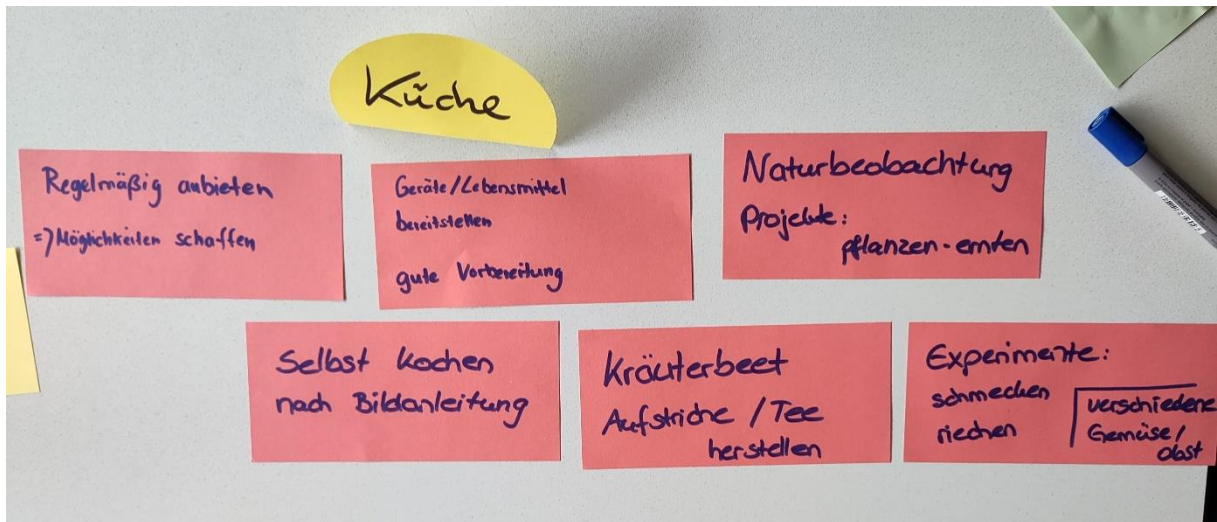 Küche
Regelmäßig anbieten
=> Möglichkeiten schaffen
Geräte/Lebensmittel
bereitstellen
gute Vorbereitung
Naturbeobachtung
Projekte:
pflanzen - ernten
Selbst kochen
nach Bildanleitung
Kräuterbeet
Aufstriche / Tee
herstellen
Experimente:
schmecken
riechen
verschiedene
Gemüse/
obst